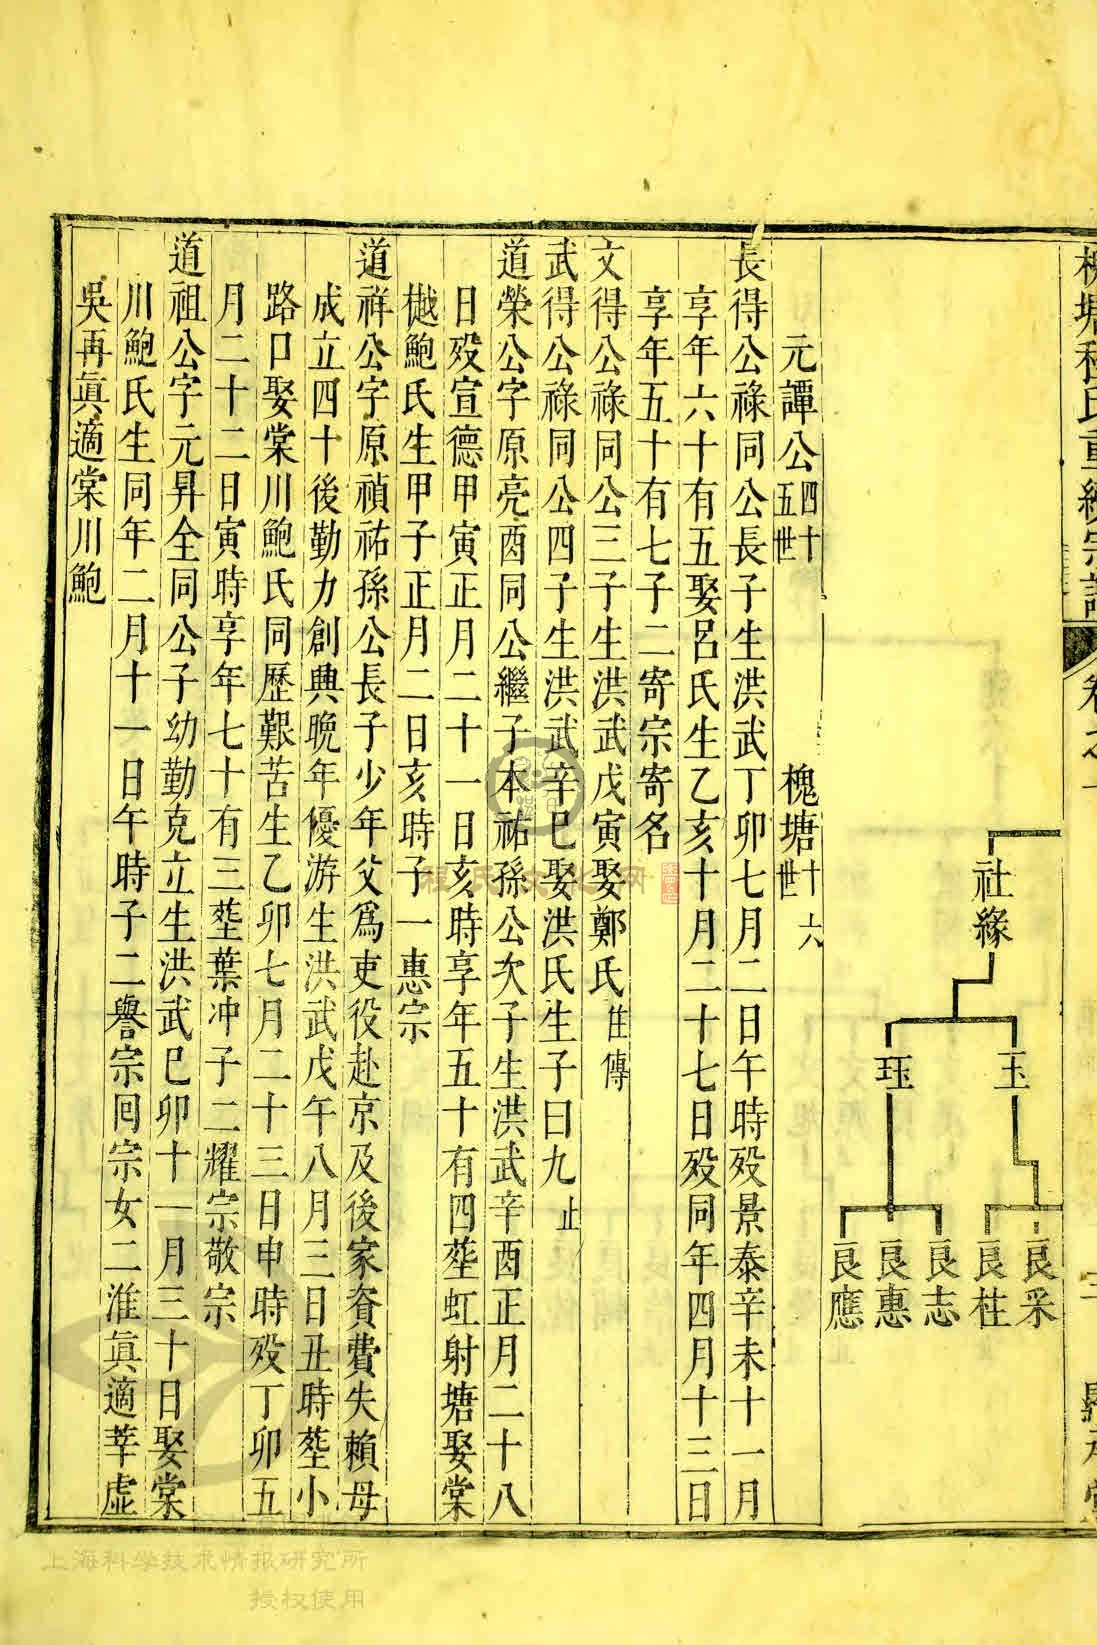 槐塘程氏重續宗譜
卷之
社緣
玉
珏
良采
良桂
良志
良惠
良應
元譚公四十五世 槐塘十六世
長得公祿同公長子生洪武丁卯七月二日午時殁景泰辛未十一月
享年六十有五娶呂氏生乙亥十月二十七日殁同年四月十三日
享年五十有七子二寄宗寄名
文得公祿同公三子生洪武戊寅娶鄭氏
武得公祿同公四子生洪武辛巳娶洪氏生子曰九止
道榮公字原亮酉同公繼子本祐孫公次子生洪武辛酉正月二十八
日殁宣德甲寅正月二十一日亥時享年五十有四塟虹射塘娶棠
樾鮑氏生甲子正月二日亥時子一惠宗
道祥公字原禎祐孫公長子少年父爲吏役赴京及後家資費失賴母
成立四十後勤力創興晚年優游生洪武戊午八月三日丑時塟小
路口娶棠川鮑氏同歷艱苦生乙卯七月二十三日申時殁丁卯五
月二十二日寅時享年七十有三塟葉冲子二耀宗敬宗
道祖公字元昇全同公子幼勤克立生洪武巳卯十一月三十日娶棠
川鮑氏生同年二月十一日午時子二譽宗囘宗女二淮眞適莘虛
吳再眞適棠川鮑
程氏文化网
上海科学技术情报研究所
授权使用